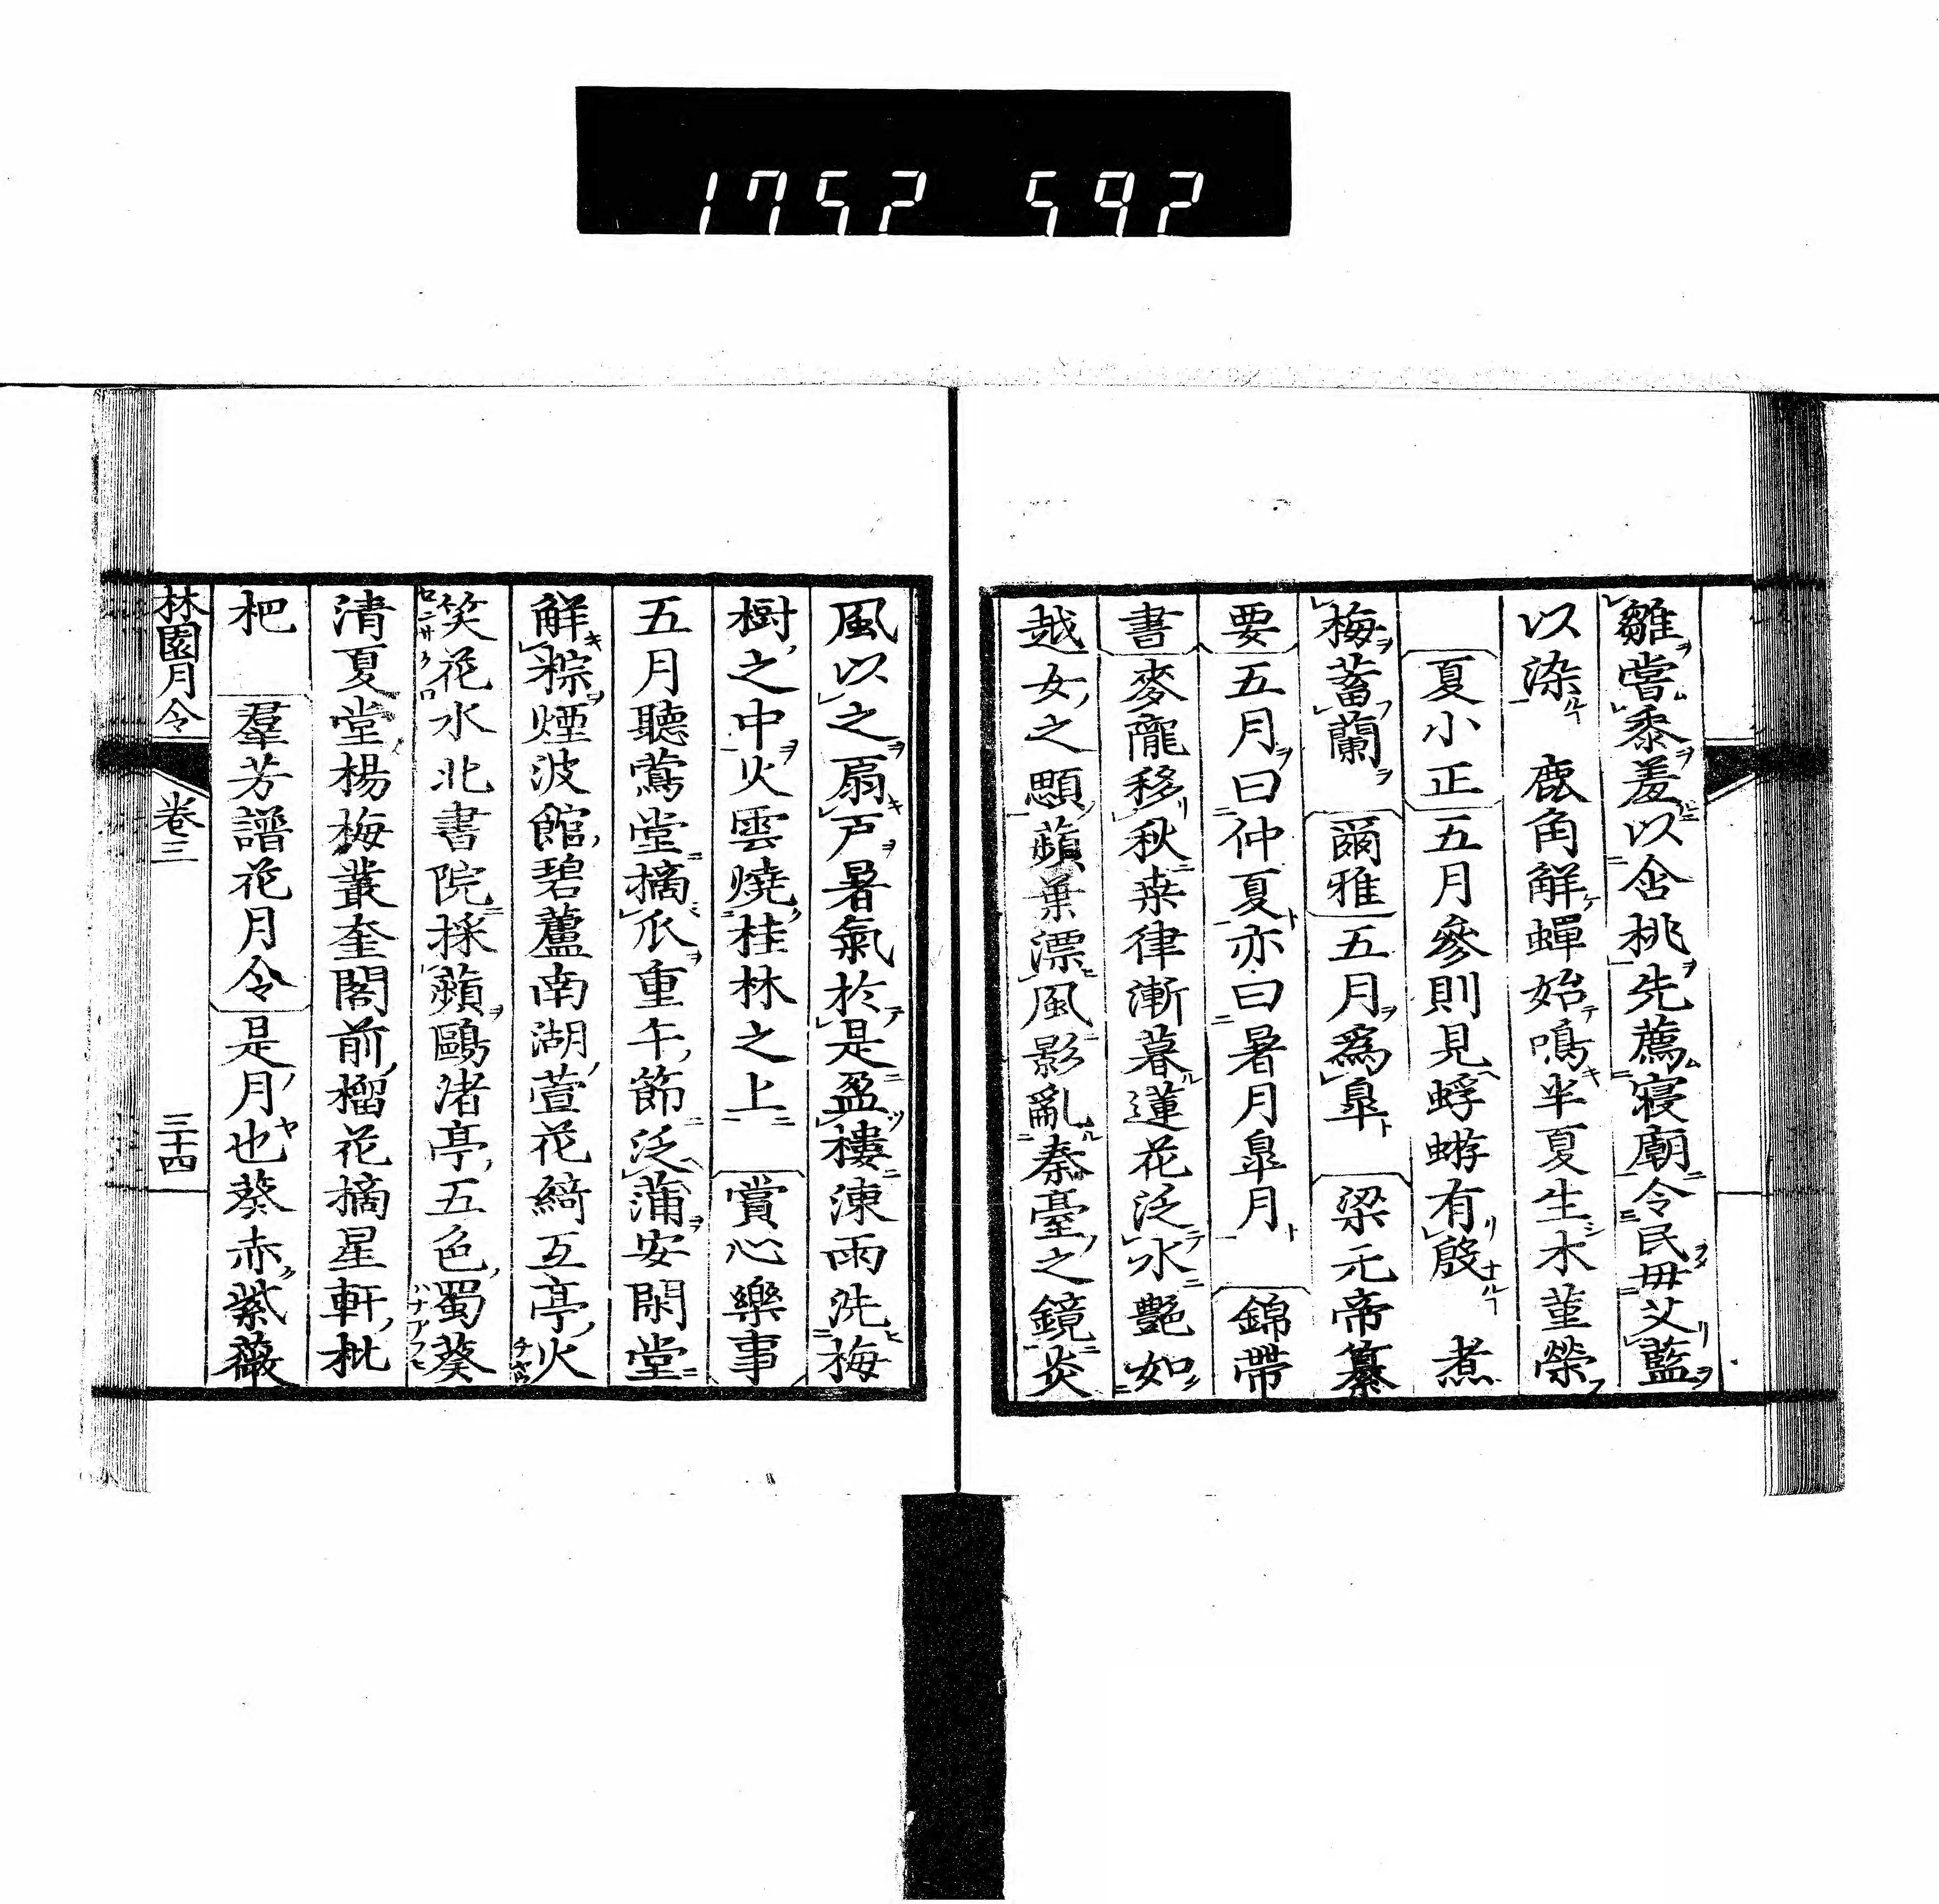 1752 592
雛嘗黍羞以含桃先薦寝廟令民毋艾藍
以染 鹿角解蟬始鳴半夏生木菫榮
夏小正 五月參則見蜉蝣有殷 煮
梅蓄蘭 爾雅 五月為皐 梁元帝纂
要 五月曰仲夏亦曰暑月皐月 錦帶
書 麥隴移秋桒律漸暮蓮花泛水艶如
越女之顋蘋葉漂風影亂秦臺之鏡炎
風以之扇戸暑氣於是盈樓凍雨洗梅
樹之中火雲燒桂林之上 賞心樂事
五月聽鶯堂摘瓜重午節泛蒲安閑堂
解粽煙波館碧蘆南湖萱花綺互亭火
笑花水北書院採蘋鷗渚亭五色蜀葵
清夏堂楊梅叢奎閣前榴花摘星軒枇
杷 羣芳譜花月令 是月也葵赤紫薇
林園月令 卷三 三十四